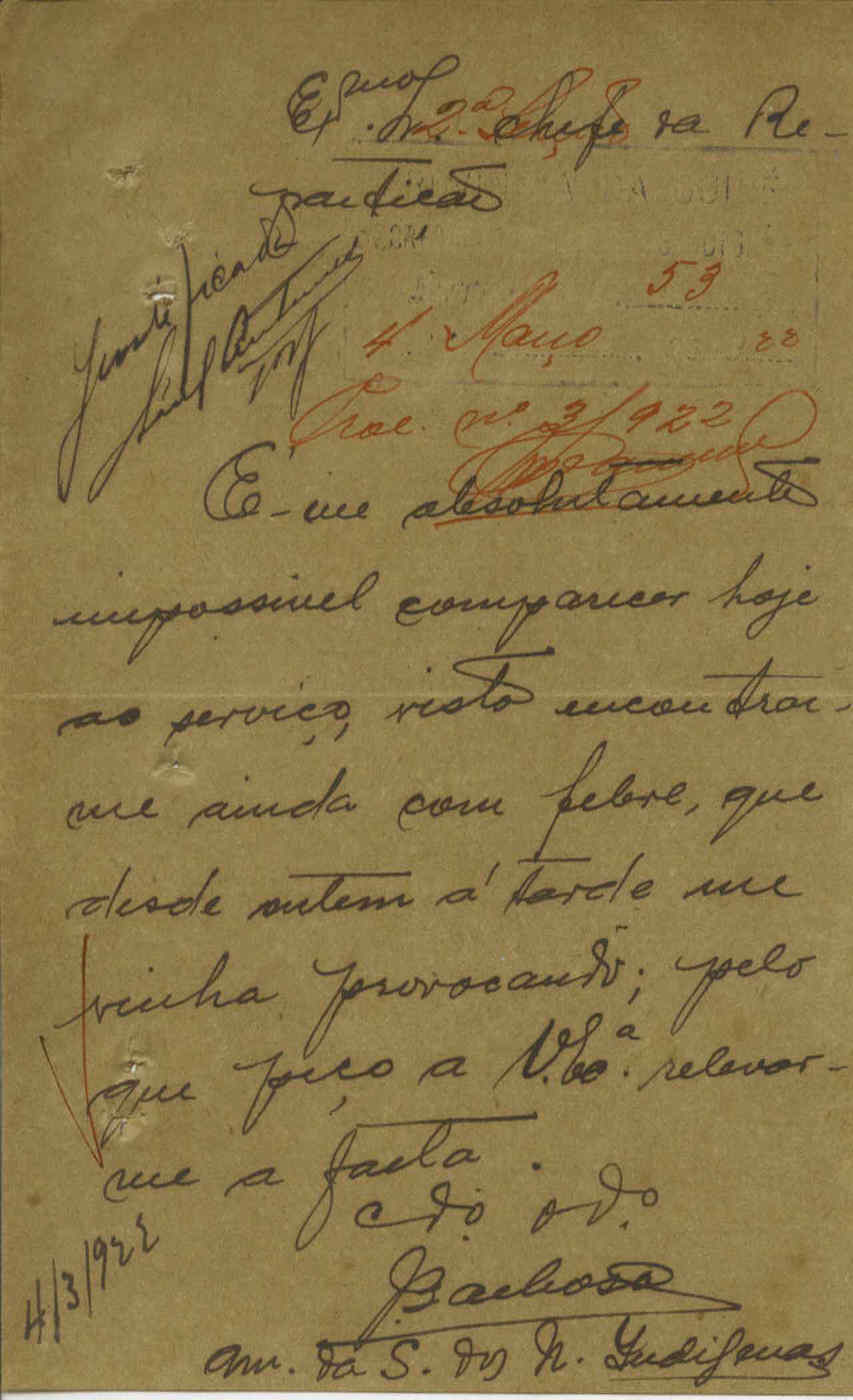 Exmo. Sr. Chefe da Re-
partição
2.ª Secção
Justificada
53
4 Março 22
Proc. nº 3/922
É-me absolutamente
impossivel comparecer hoje
ao serviço, visto encontrar-
me ainda com febre, que
desde ontem á tarde me
vinha provocando; pelo
que peço a V. Ex.ª relevar-
me a falta.
Cdo. Odo.
Barbosa
4/3/922
Am. da S. dos N. Indigenas